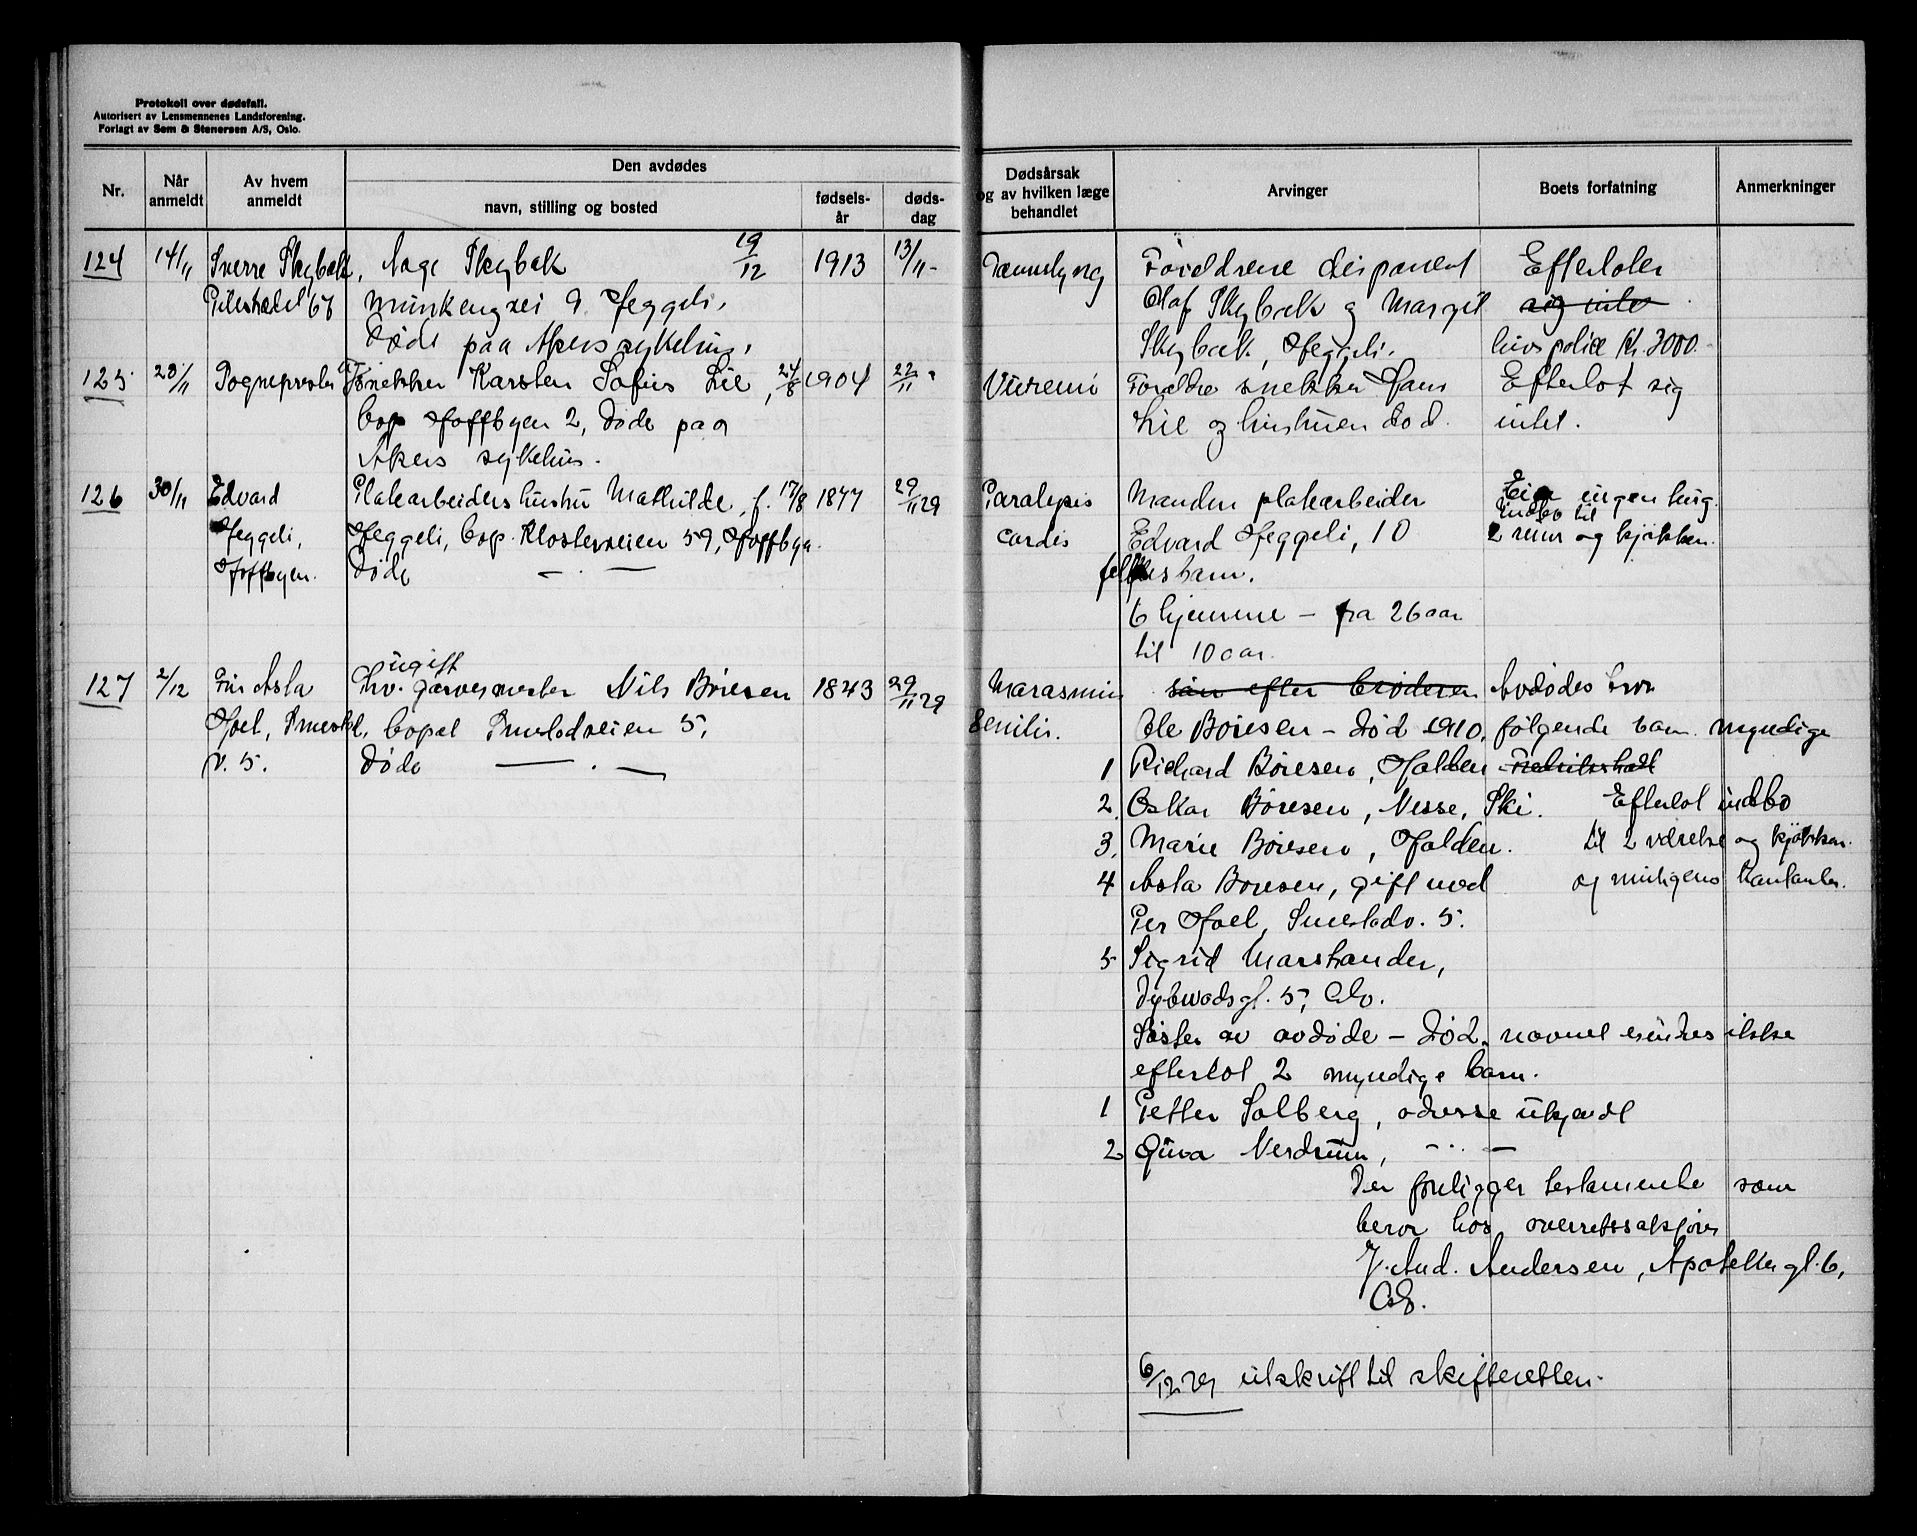 Protokoll over dødsfall.
Autorisert av Lensmennenes Landsforening.
Forlagt av Sem & Stenersen A/S, Oslo.
Nr.
Når anmeldt
Av hvem anmeldt
Den avdødes
navn, stilling og bosted
fødselsår
dødsdag
Dødsårsak og av hvilken læge behandlet
Arvinger
Boets forfatning
Anmerkninger
124
14/11
Sverre Skybak,
Pilestrædet 67
Aage Skybak 19/12
Munkengvei 9 Heggeli,
Døde paa Akers sykehus.
1913
13/11
Foreldrene disponent
Olaf Skybak og Margit
Skybak, Heggeli.
Efterlater
sig intet
livspolice Kr. 3000.-
125
23/11
Sognepresten
Snekker Karsten Sofus Lie, 24/8
bop Hoffbyen 2, Døde paa
Akers sykehus.
1904
22/11 "
Uremi
Foreldre snekker Hans
Lie og hustruen død.
Efterlot sig
intet.
126
30/11
Edvard
Heggeli,
Hoffbyen.
Platearbeiders hustru Mathilde, f. 17/8
Heggeli, bop. Klosterveien 59, Hoffbyn.
Døde — . —
1877
29/11 29
Paralysis
cordis
Manden platearbeider
Edvard Heggeli, 10
felles barn.
6 hjemme – fra 26 aar
til 10 aar.
Eier ingen ting
indbo til
2 rum og kjøkken.
127
2/12
Fru Asta
Hoel, Smestad,
v. 5.
ugift
Fhv. garvermester Nils Børesen
bopæl Smestadveien 5,
Døde — . —
1843
29/11 29
Marasmus
senilis.
sön efter broderen
Ole Børesen – død 1910,
Avdødes bror
følgende barn myndige
1 Richard Børesen, Halden Fredrikshald
2. Oskar Børesen, Nesse, Ski.
3. Marie Børesen, Halden.
4 Asta Børesen, gift med
Per Hoel, Smestadv. 5.
5 Sigrid Marstrander,
Dybwadsgt. 5, Oslo.
Efterlot indbo
til 2 værelse og kjøkken.
og muligens kontanter.
Søster av avdøde – død, navnet erindres ikke
efterlot 2 myndige barn.
1 Petter Solberg, adresse ukjendt
2 Nerdrum, – " –
Der foreligger testamente som
beror hos overretssakfører
J. And. Andersen, Apotekergt. 6,
Oslo.
6/12 29 utskrift til skifteretten.